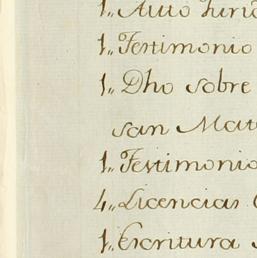 1,, Auto Juri
1,, Testimonio
1,, Dho sobre
san Mat
1,, Testimonio
4,, Licencias
1,, Escritura